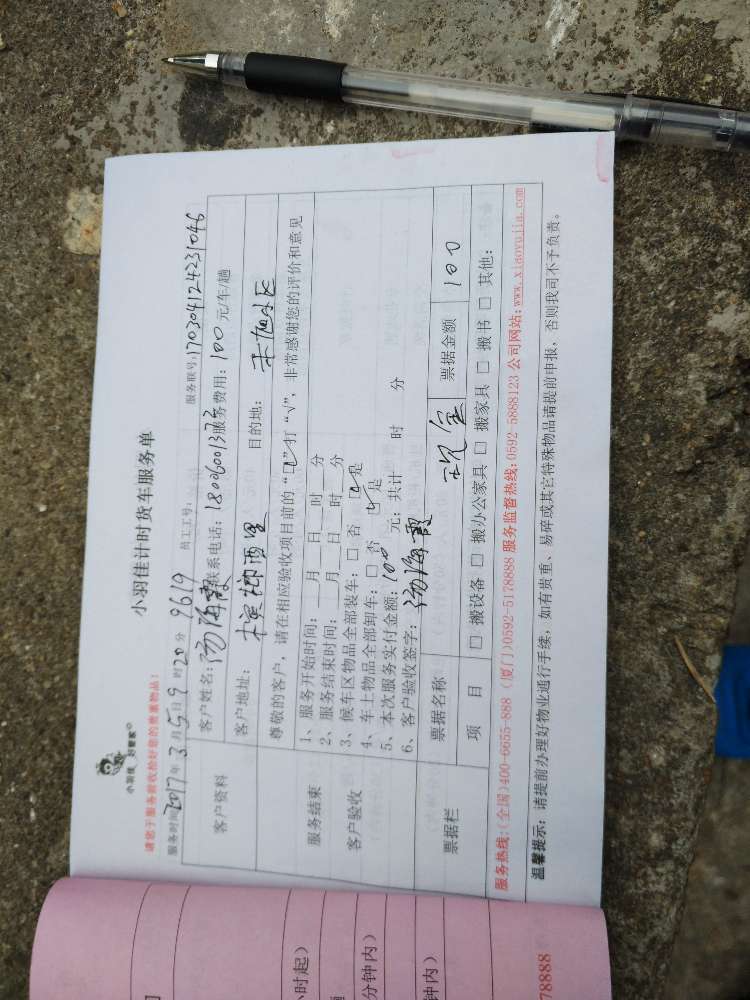 小羽佳 好管家
小羽佳计时货车服务单
请您于服务前收拾好您的贵重物品!
服务时间:2017年3月5日9时20分 9619 员工工号: 服务联号:170304124231046
客户资料
客户姓名:汤海霞 联系电话:18006001373 服务费用:100元/车/趟
客户地址: 西里 目的地:
尊敬的客户,请在相应验收项目前的“□”打“√”,非常感谢您的评价和意见
服务结束
客户验收
1、服务开始时间:___月___日___时___分
2、服务结束时间:___月___日___时___分
3、候车区物品全部装车:□ 否 □是
4、车上物品全部卸车:□ 否 □是
5、本次服务实付金额:100 元;共计 时 分
6、客户验收签字:汤海霞
票据栏
票据名称 现金 票据金额 100
项 目 □ 搬设备 □ 搬办公家具 □ 搬家具 □ 搬书 □ 其他:
服务热线:(全国)400-6655-888 (厦门)0592-5178888 服务监督热线:0592-5888123 公司网站:www.xiaoyujia.com
温馨提示:请提前办理好物业通行手续,如有贵重、易碎或其它特殊物品请提前申报,否则我司不予负责。
小时起)
分钟内)
钟内)
78888